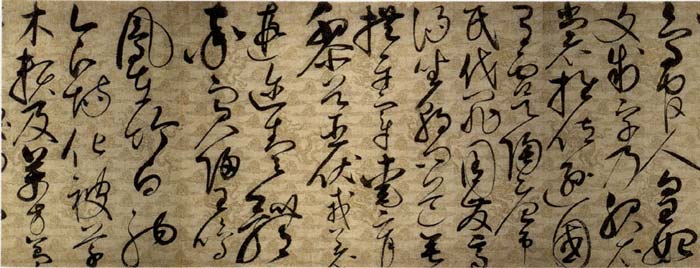 鳥官人皇始
制文字乃服衣
裳推位遜國
有虞陶唐弔
民伐罪周發商
湯坐朝問道垂
拱平章愛育
黎首臣伏戎羌
遐邇壹體
率賓歸王鳴
鳳在竹白駒
食場化被草
木賴及萬方蓋